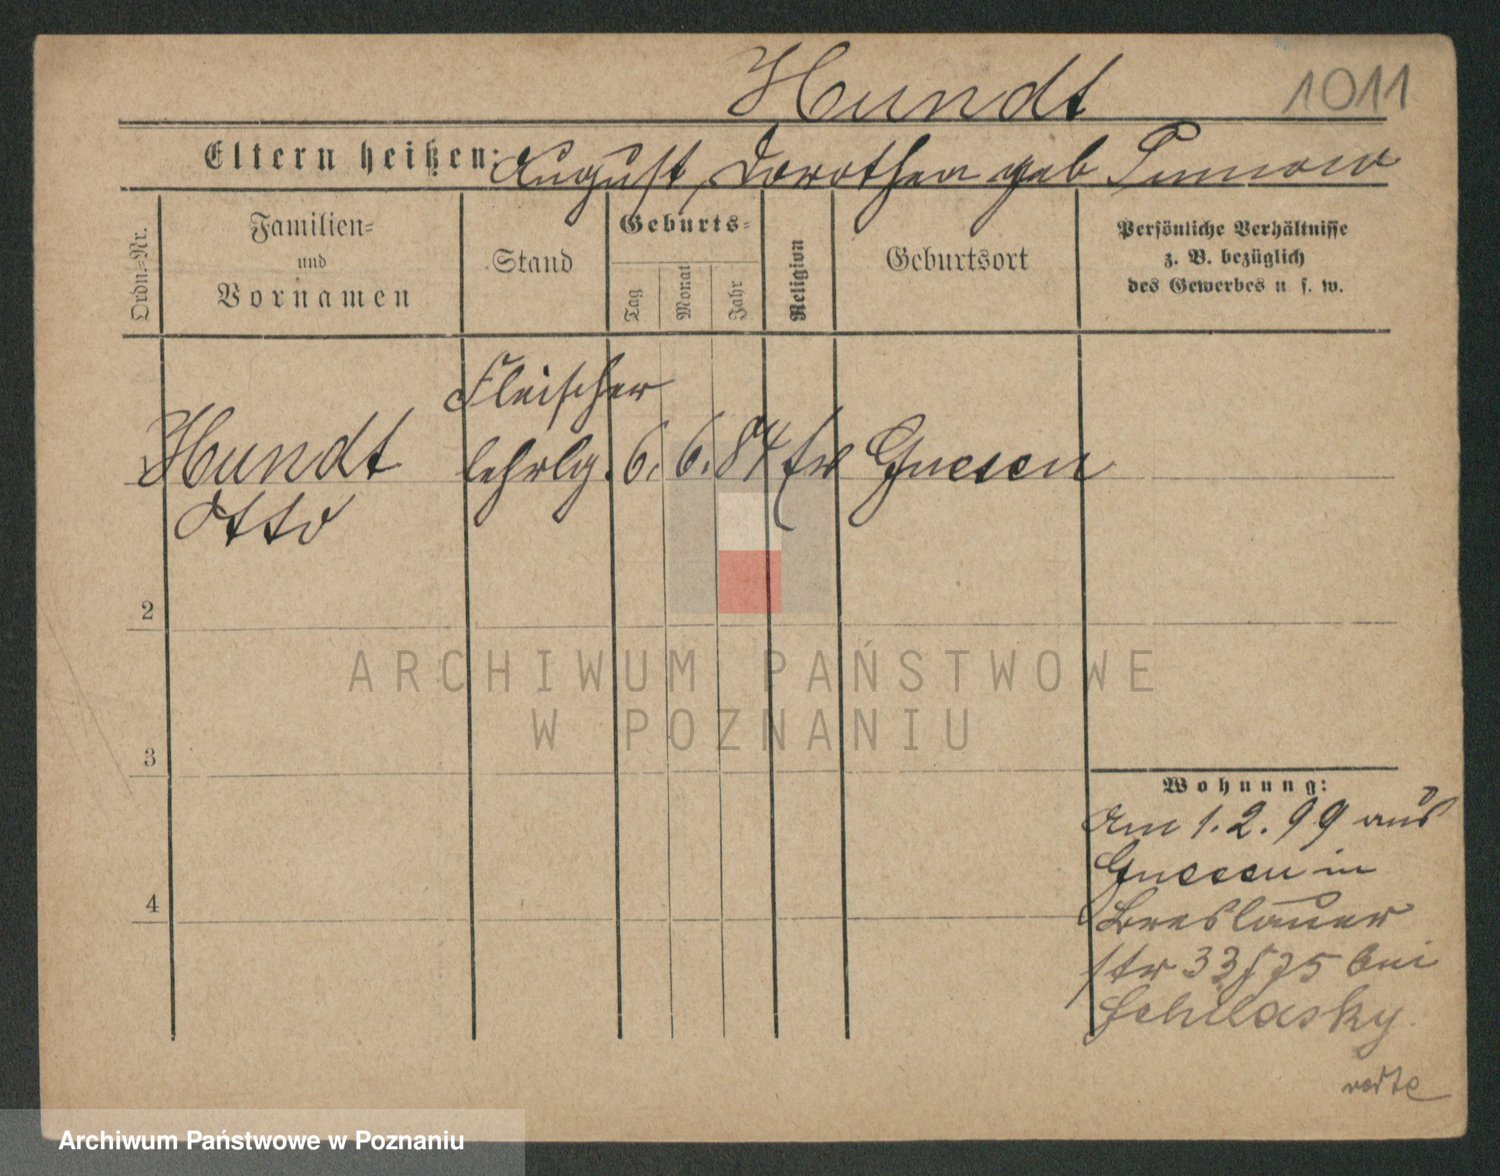 Hundt 1011
Eltern heißen: August, Dorothea geb
Ordn.-Nr.
Familien-
und
Vornamen
Stand
Geburts-
Tag
Monat
Jahr
Religion
Geburtsort
Persönliche Verhältnisse
z. B. bezüglich
des Gewerbes u. s. w.
Fleischer
Hundt lehrlg. 6. 6. 84 ev Gnesen
Otto
2
3
4
Wohnung:
Am 1.2.99 aus
Gnesen in
Breslauer
str bei
ARCHIWUM PAŃSTWOWE
W POZNANIU
Archiwum Państwowe w Poznaniu